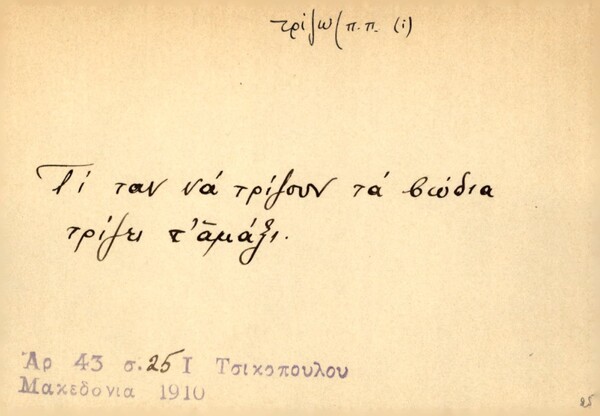 τρίζω (π.π. (i)
Τί ταν νά τρίζουν τά βώδια
τρίζει τ' ἀμάξι.
Ἀρ 43 σ. 25 Ι Τσικοπουλου
Μακεδονια 1910
25